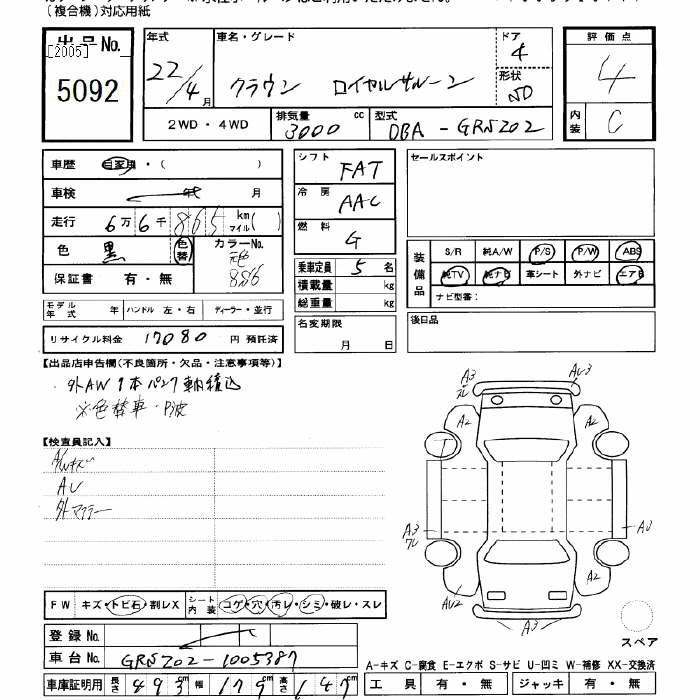 (複合機)対応用紙
出品No.
[2005]
5092
年式
22/4月
車名・グレード
クラウン ロイヤルサルーン
ドア
4
形状
SD
評価点
4
内装
C
2WD・4WD
排気量
3000 cc
型式
DBA-GRS202
車歴
自家用・( )
車検
年 月
走行
6万6千865 km マイル( )
色
黒
色替
カラーNo.
元色
8S6
保証書 有・無
シフト
FAT
冷房
AAC
燃料
G
乗車定員 5名
積載量 kg
総重量 kg
セールスポイント
装備品
S/R 純A/W P/S P/W ABS
純TV 純ナビ 革シート 外ナビ エアB
ナビ型番:
モデル年式 年 ハンドル 左・右 ディーラー・並行
リサイクル料金 17080 円 預託済
名変期限
月 日
後日品
【出品店申告欄(不良箇所・欠品・注意事項等)】
・外AW 1本パンク 軸積込
※色替車・
【検査員記入】
A/Wキズ
AU
外マフラー
A3
AU3
A2
A2
A3
A3
AU2
A2
A3
FW キズ・トビ石・割レX
シート内装 コゲ・穴・汚レ・シミ・破レ・スレ
登録No.
車台No. GRS202-1005387
車庫証明用 長さ 493cm 幅 179cm 高さ 147cm
スペア
A-キズ C-腐食 E-エクボ S-サビ U-凹ミ W-補修 XX-交換済
工具 有・無 ジャッキ 有・無